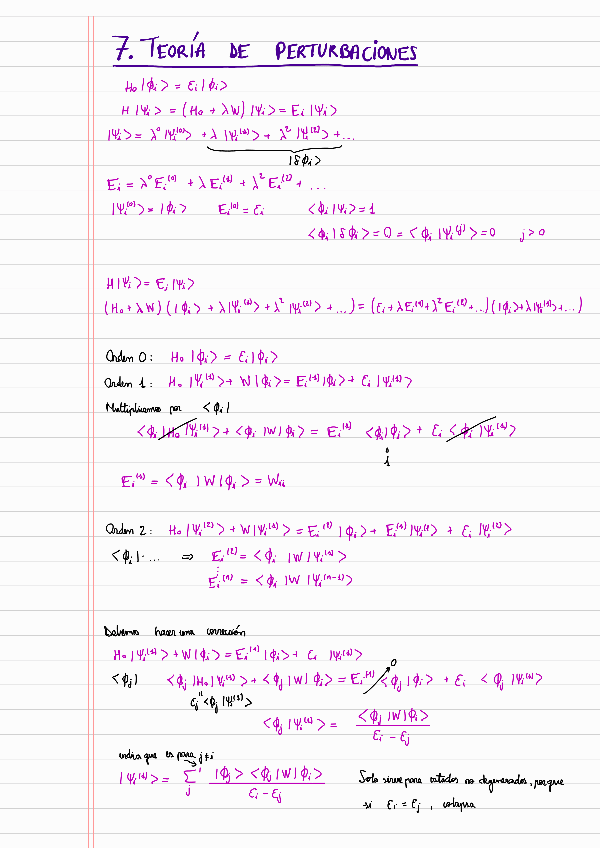 7. TEORÍA DE PERTURBACIONES
H₀ |ϕᵢ> = εᵢ |ϕᵢ>
H |Ψᵢ> = (H₀ + λW) |Ψᵢ> = Eᵢ |Ψᵢ>
|Ψᵢ> = λ⁰ |Ψᵢ⁽⁰⁾> + λ |Ψᵢ⁽¹⁾> + λ² |Ψᵢ⁽²⁾> + ...
|δϕᵢ>
Eᵢ = λ⁰ Eᵢ⁽⁰⁾ + λ Eᵢ⁽¹⁾ + λ² Eᵢ⁽²⁾ + ...
|Ψᵢ⁽⁰⁾> = |ϕᵢ> Eᵢ⁽⁰⁾ = εᵢ <ϕᵢ |Ψᵢ> = 1
<ϕᵢ | δϕᵢ> = 0 = <ϕᵢ |Ψᵢ⁽ʲ⁾> = 0 j > 0
H |Ψᵢ> = Eᵢ |Ψᵢ>
(H₀ + λW) (|ϕᵢ> + λ |Ψᵢ⁽¹⁾> + λ² |Ψᵢ⁽²⁾> + ...) = (εᵢ + λEᵢ⁽¹⁾ + λ² Eᵢ⁽²⁾ + ...) (|ϕᵢ> + λ |Ψᵢ⁽¹⁾> + ...)
Orden 0: H₀ |ϕᵢ> = εᵢ |ϕᵢ>
Orden 1: H₀ |Ψᵢ⁽¹⁾> + W |ϕᵢ> = Eᵢ⁽¹⁾ |ϕᵢ> + εᵢ |Ψᵢ⁽¹⁾>
Multiplicamos por <ϕᵢ|
<ϕᵢ | H₀ |Ψᵢ⁽¹⁾> + <ϕᵢ |W| ϕᵢ> = Eᵢ⁽¹⁾ <ϕᵢ|ϕᵢ> + εᵢ <ϕᵢ |Ψᵢ⁽¹⁾>
1
Eᵢ⁽¹⁾ = <ϕᵢ |W| ϕᵢ> = Wᵢᵢ
Orden 2: H₀ |Ψᵢ⁽²⁾> + W |Ψᵢ⁽¹⁾> = Eᵢ⁽²⁾ |ϕᵢ> + Eᵢ⁽¹⁾ |Ψᵢ⁽¹⁾> + εᵢ |Ψᵢ⁽²⁾>
<ϕᵢ| · ... ⇒ Eᵢ⁽²⁾ = <ϕᵢ |W| Ψᵢ⁽¹⁾>
⋮
Eᵢ⁽ⁿ⁾ = <ϕᵢ |W| Ψᵢ⁽ⁿ⁻¹⁾>
Debemos hacer una corrección
H₀ |Ψᵢ⁽¹⁾> + W |ϕᵢ> = Eᵢ⁽¹⁾ |ϕᵢ> + εᵢ |Ψᵢ⁽¹⁾>
0
<ϕⱼ| <ϕⱼ |H₀| Ψᵢ⁽¹⁾> + <ϕⱼ |W| ϕᵢ> = Eᵢ⁽¹⁾ <ϕⱼ | ϕᵢ> + εᵢ <ϕⱼ |Ψᵢ⁽¹⁾>
εⱼ <ϕⱼ |Ψᵢ⁽¹⁾>
<ϕⱼ |Ψᵢ⁽¹⁾> = <ϕⱼ |W| ϕᵢ> / (εᵢ − εⱼ)
indica que es para j ≠ i
|Ψᵢ⁽¹⁾> = Σ'ⱼ |ϕⱼ> <ϕⱼ |W| ϕᵢ> / (εᵢ − εⱼ) Solo sirve para estados no degenerados, porque
si εᵢ = εⱼ, colapsa